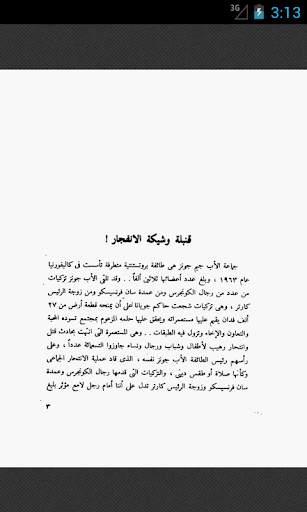 3G 3:13
قنبلة وشيكة الانفجار !
جماعة الأب جيم جونز هى طائفة بروتستنتية متطرفة تأسست فى كاليفورنيا
عام ١٩٦٣ ، ويبلغ عدد أعضائها ثلاثين ألفاً .. وقد تلقى الأب جونز تزكيات
من عدد من رجال الكونجرس ومن عمدة سان فرنسيسكو ومن زوجة الرئيس
كارتر ، وهى تزكيات شجعت حاكم جويانا على أن يمنحه قطعة أرض من ٢٧
ألف فدان يقيم عليها مستعمراته ويحقق عليها حلمه المزعوم بمجتمع تسوده المحبة
والتعاون والإخاء وتزول فيه الطبقات .. وهى المستعمرة التى انتهت بحادث قتل
وانتحار رهيب لأطفال وشباب ورجال ونساء جاوزوا التسعمائة عدداً ، وعلى
رأسهم رئيس الطائفة الأب جونز نفسه ، الذى قاد عملية الانتحار الجماعى
وكأنها صلاة أو طقس دينى ، والتزكيات التى قدمها رجال الكونجرس وعمدة
سان فرنسيسكو وزوجة الرئيس كارتر تدل على أننا أمام رجل لامع مؤثر بليغ
٣